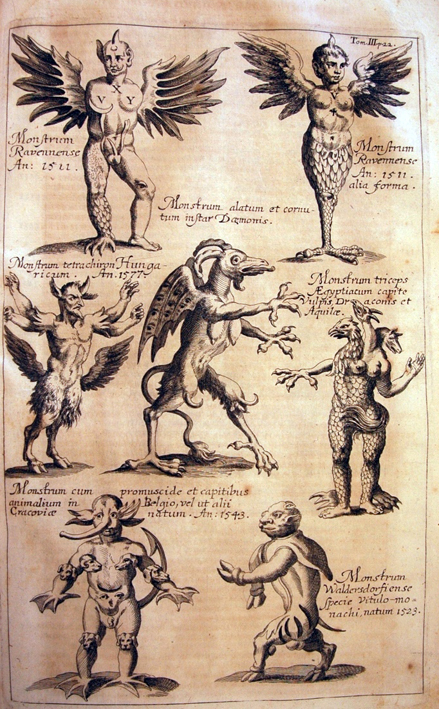 Tom III p 22.
Monstrum
Ravennense
An: 1511.
V X Y
Monstrum
Ravennense
An: 1511.
alia forma.
Monstrum alatum et cornu-
tum instar Dæmonis.
Monstrum tetrachiron Hunga-
ricum. An. 1577
Monstrum triceps
Ægyptiacum capite
Vulpis, Draconis et
Aquilæ.
Monstrum cum promuscide et capitibus
animalium in Belgio, vel ut alii
Cracoviæ natum. An: 1543.
Monstrum
Waldersdorfiense
specie Vitulo-mo-
nachi, natum 1523.